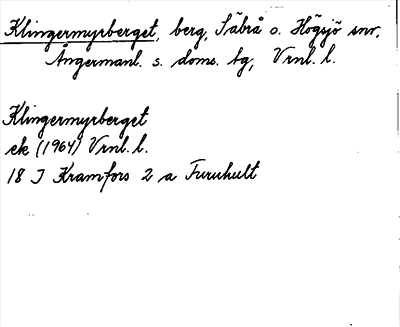 Klingermyrberget, berg, Säbrå o. Högsjö snr,
Ångermanl. s. doms. tg, Vrnl. l.
Klingermyrberget
ek (1964) Vrnl. l.
18 I Kramfors 2 a Furuhult